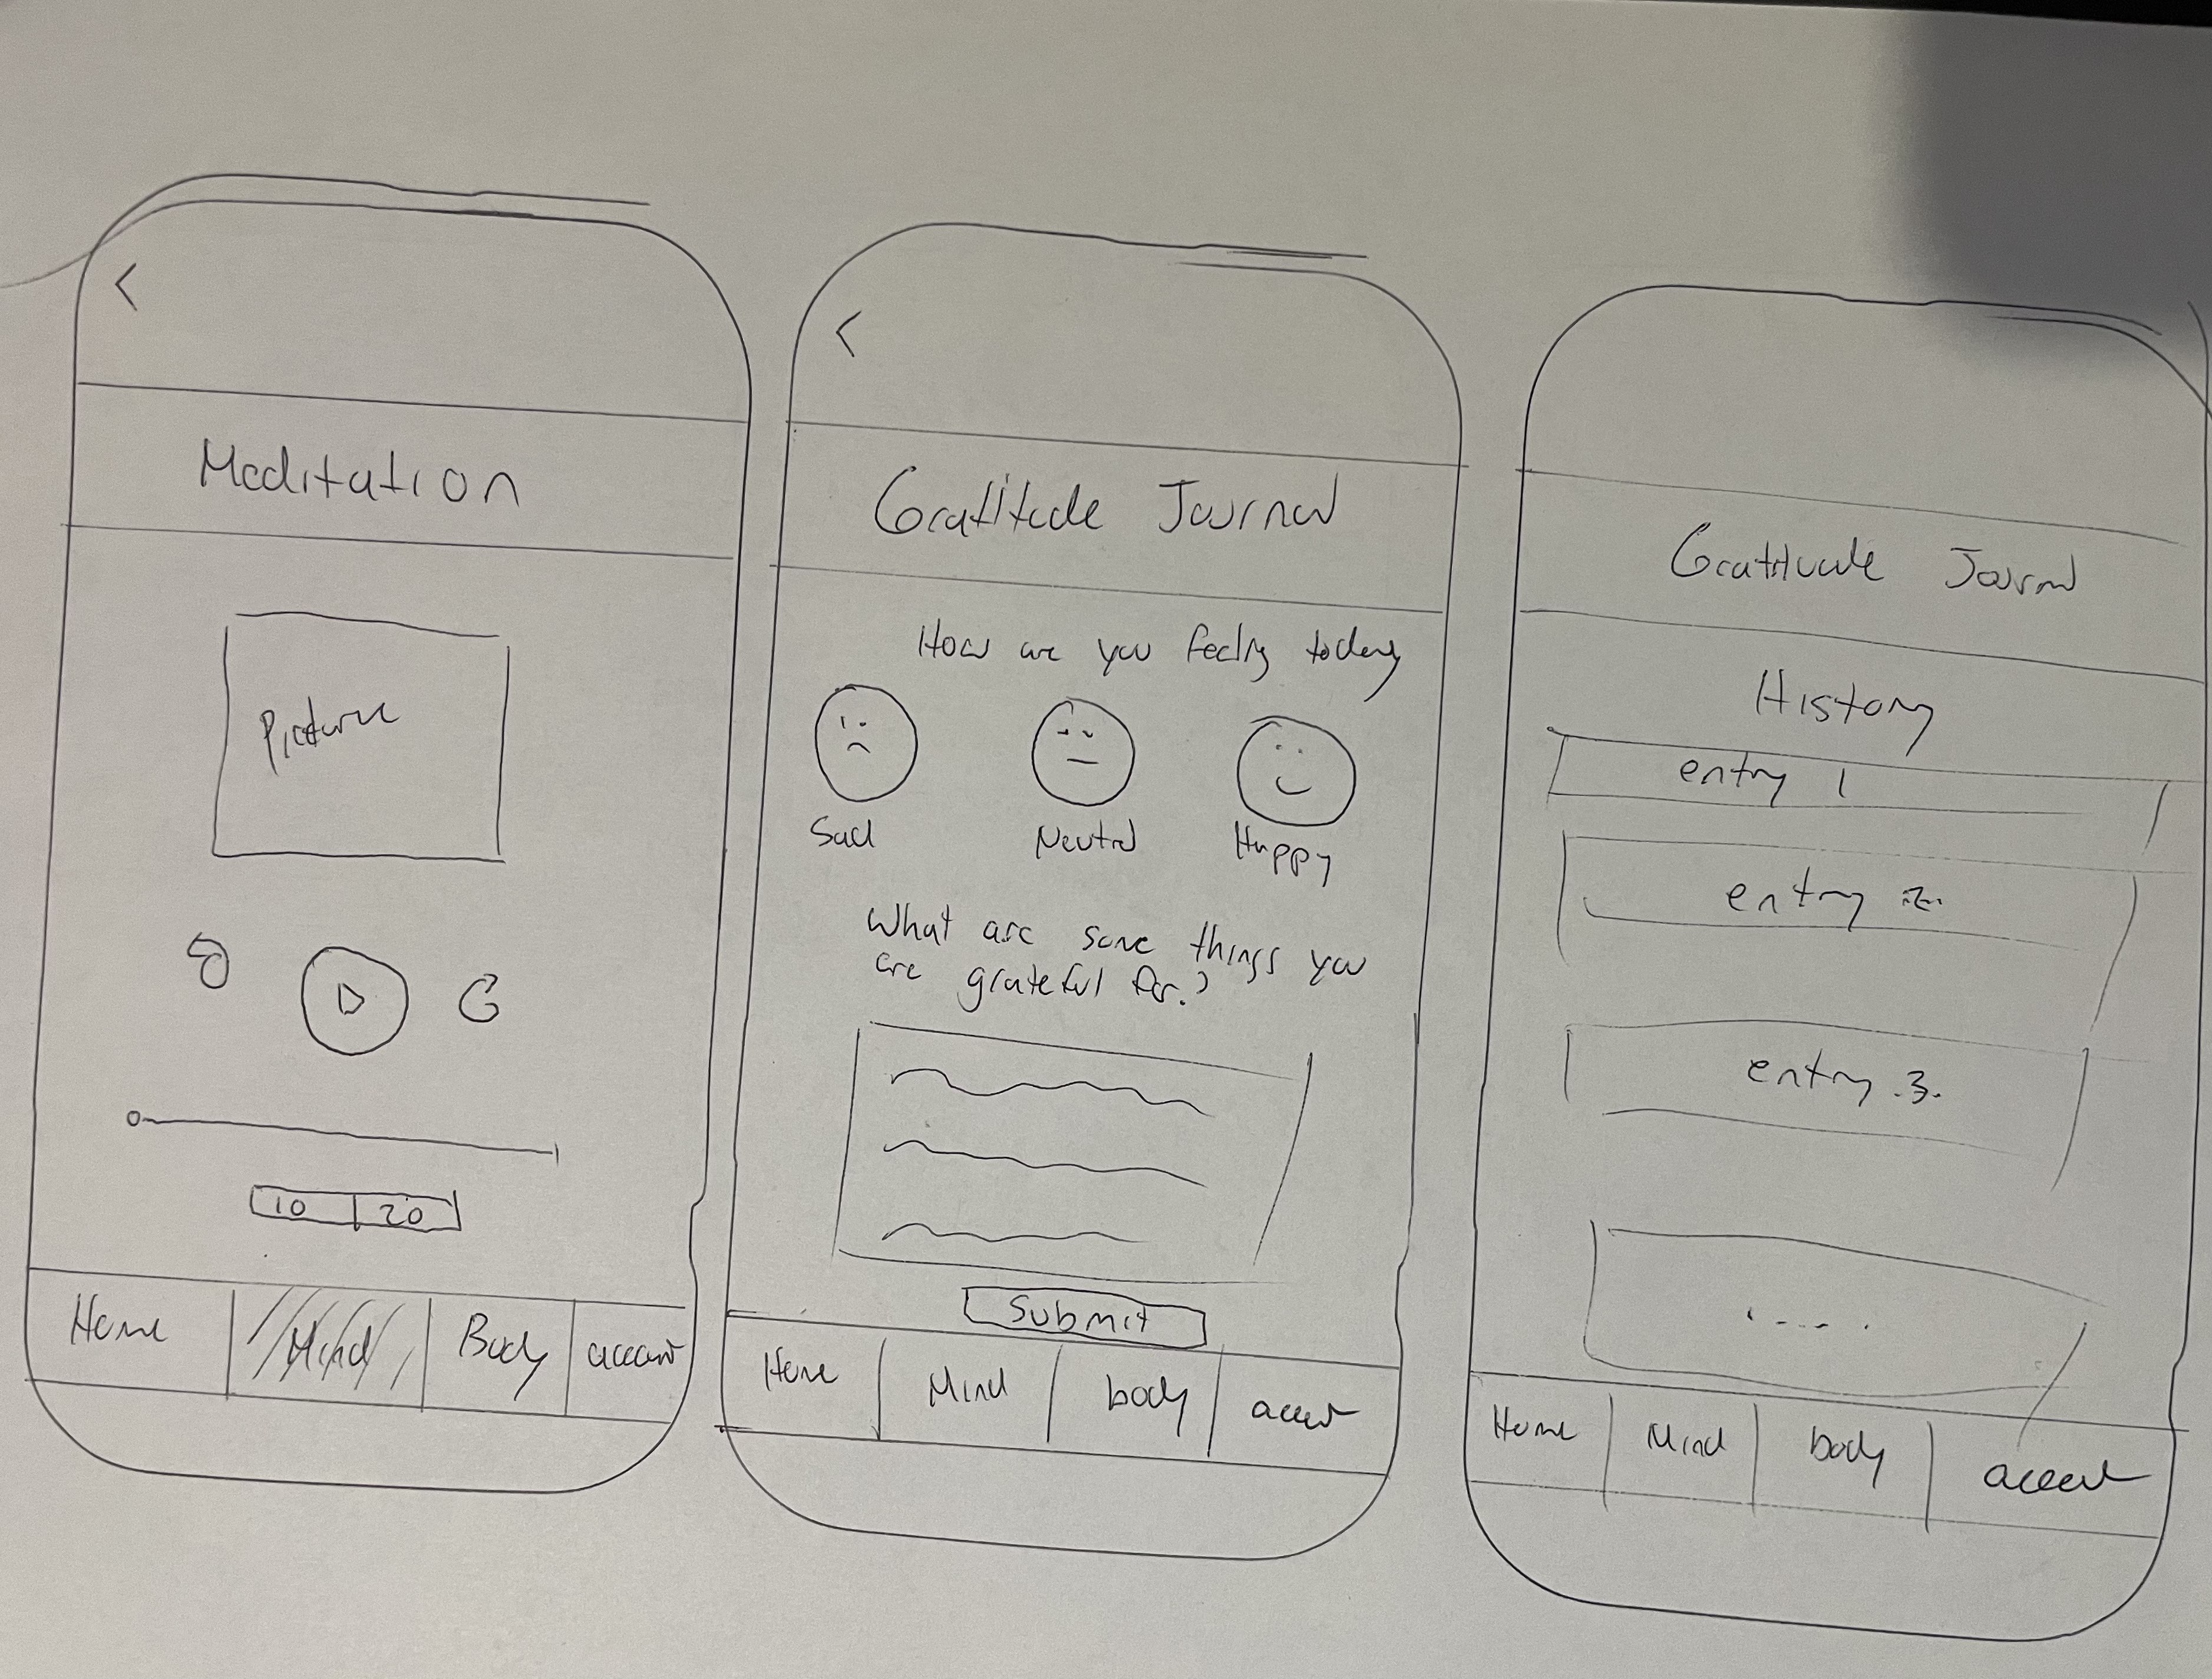 <
Meditation
Picture
10 20
Home Mind Body account
<
Gratitude Journal
How are you feeling today
Sad Neutral Happy
What are some things you
are grateful for?
Submit
Home Mind body
Gratitude Journal
History
entry 1
entry 2
entry 3
.....
Home Mind body